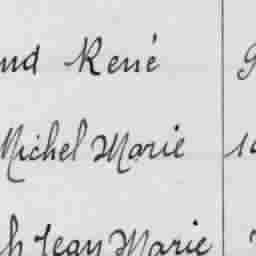 nd René
Michel Marie
h Jean Marie